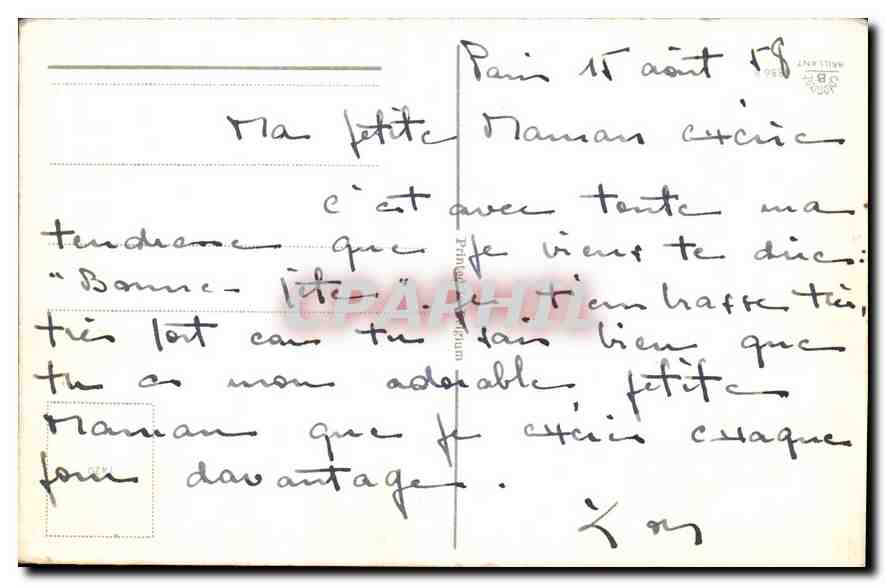 Paris 15 août 58
Ma petite Maman chérie
c'est avec toute ma
tendresse que je viens te dire :
"Bonne fête". je t'embrasse très,
très fort car tu sais bien que
tu es mon adorable petite
Maman que je chéris chaque
jour davantage.
Printed Belgium
CPAPHIL
BRILLANT
1420